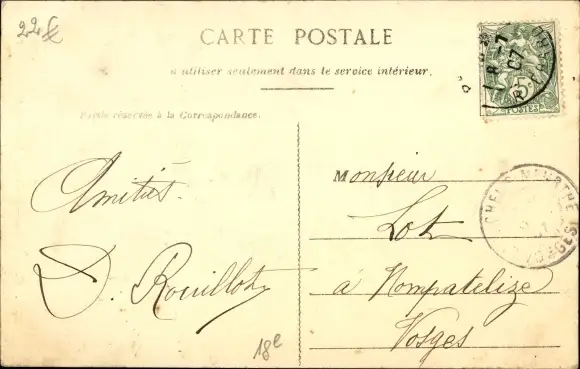 22f
CARTE POSTALE
à utiliser seulement dans le service intérieur.
Partie réservée à la Correspondance.
Amitiés.
D. Rouillot
18e
Monsieur
Lot
à Nompatelize
Vosges
8 -7
07
5c
POSTES
MEURTHE
VOSGES